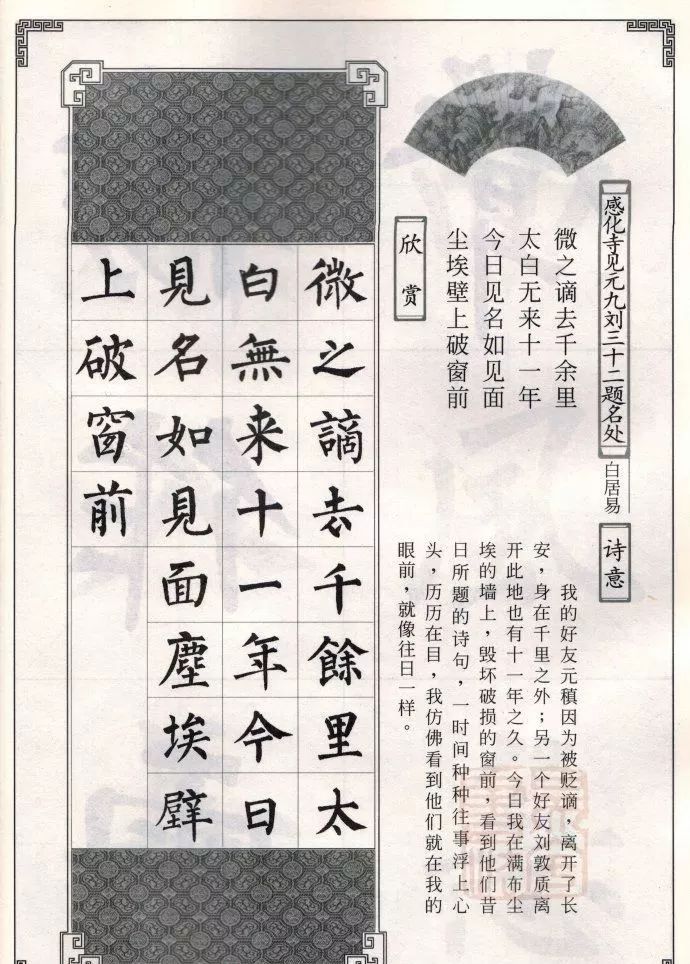 感化寺见元九刘三十二题名处
白居易
微之谪去千余里
太白无来十一年
今日见名如见面
尘埃壁上破窗前
诗意
我的好友元稹因为被贬谪，离开了长
安，身在千里之外；另一个好友刘敦质离
开此地也有十一年之久。今日我在满布尘
埃的墙上，毁坏破损的窗前，看到他们昔
日所题的诗句，一时间种种往事浮上心
头，历历在目，我仿佛看到他们就在我的
眼前，就像往日一样。
欣赏
微之謫去千餘里太
白無来十一年今日
見名如見面塵埃壁
上破窗前